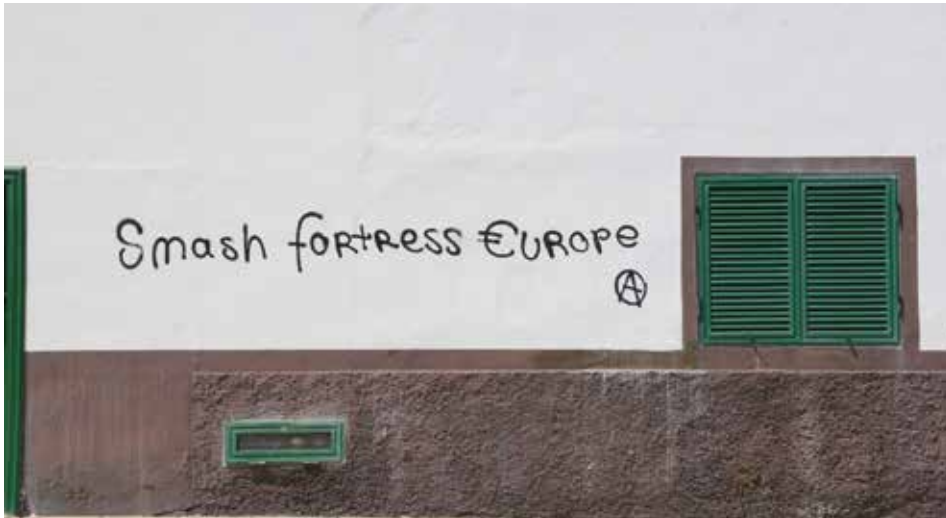 Smash fortress €urope
Ⓐ